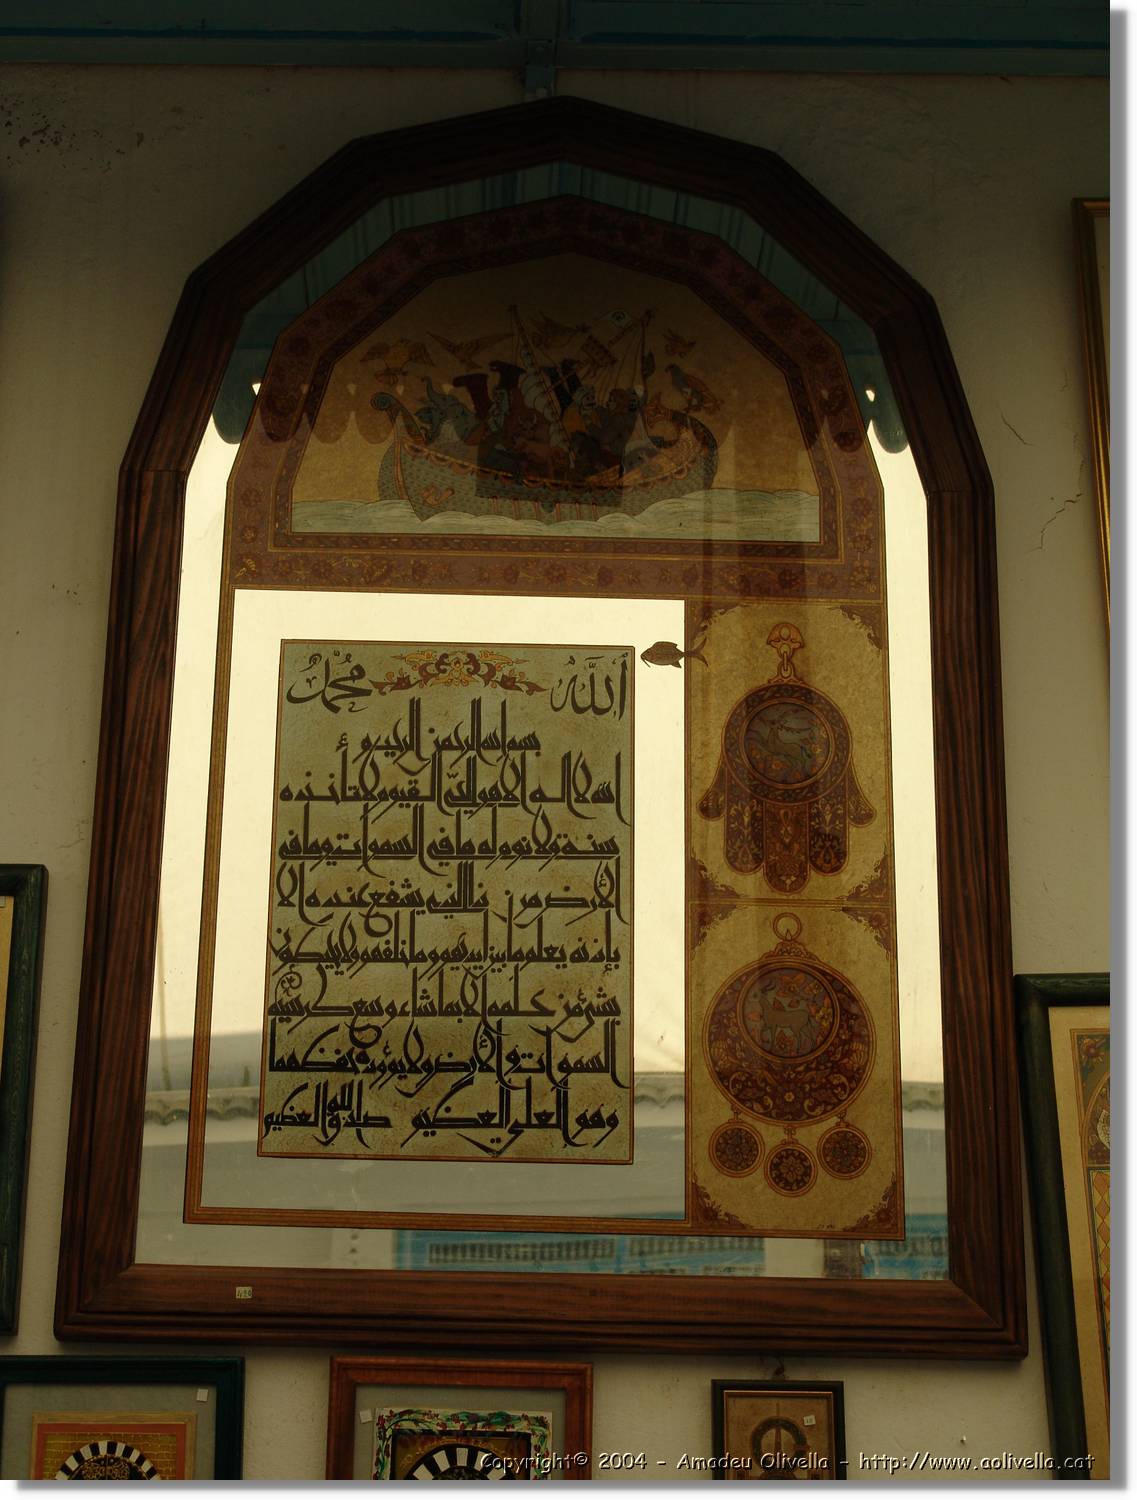 الله محمد
بسم الله الرحمن الرحيم
الله لا اله الا هو الحي القيوم لا تأخذه
سنة ولا نوم له ما في السموات وما في
الأرض من ذا الذي يشفع عنده إلا
بإذنه يعلم ما بين ايديهم وما خلفهم ولا يحيطون
بشيء من علمه الا بما شاء وسع كرسيه
السموات والأرض ولا يؤده حفظهما
وهو العلي العظيم صدق الله العظيم
Copyright© 2004 - Amadeu Olivella - http://www.aolivella.cat